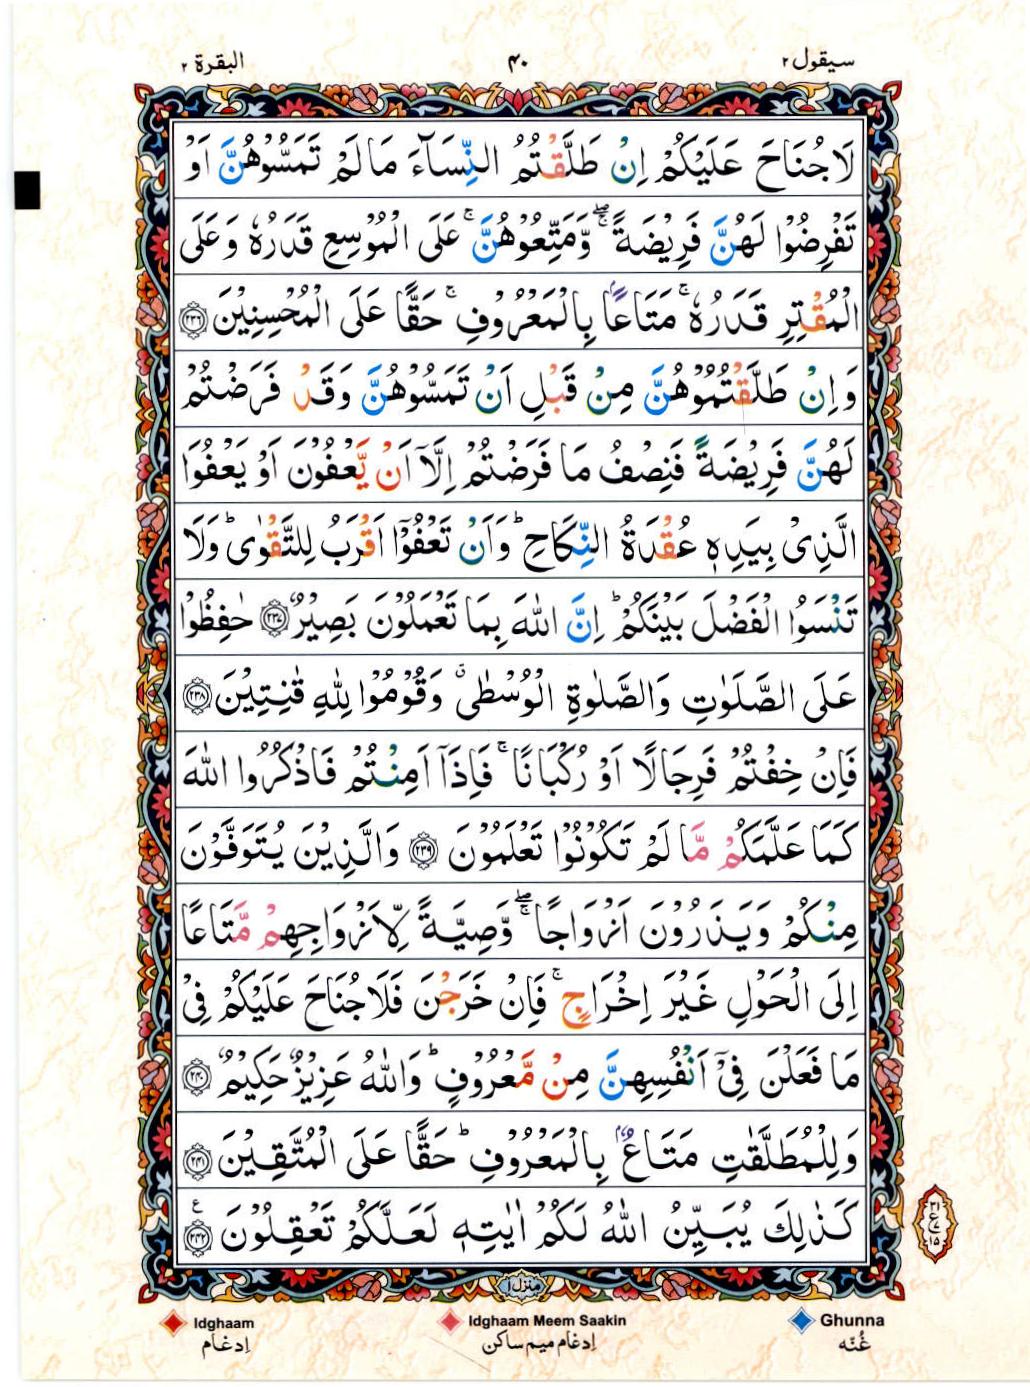 سيقول ٢ ۴۰ البقرة ٢
لَا جُنَاحَ عَلَيۡكُمۡ اِنۡ طَلَّقۡتُمُ النِّسَآءَ مَا لَمۡ تَمَسُّوۡهُنَّ اَوۡ
تَفۡرِضُوۡا لَهُنَّ فَرِيۡضَةً ۖۚ وَّمَتِّعُوۡهُنَّ ۚ عَلَى الۡمُوۡسِعِ قَدَرُهٗ وَعَلَى
الۡمُقۡتِرِ قَدَرُهٗ ۚ مَتَاعًاۢ بِالۡمَعۡرُوۡفِ ۚ حَقًّا عَلَى الۡمُحۡسِنِيۡنَ ﴿۲۳۶﴾
وَاِنۡ طَلَّقۡتُمُوۡهُنَّ مِنۡ قَبۡلِ اَنۡ تَمَسُّوۡهُنَّ وَقَدۡ فَرَضۡتُمۡ
لَهُنَّ فَرِيۡضَةً فَنِصۡفُ مَا فَرَضۡتُمۡ اِلَّاۤ اَنۡ يَّعۡفُوۡنَ اَوۡ يَعۡفُوَا
الَّذِىۡ بِيَدِهٖ عُقۡدَةُ النِّكَاحِ ؕ وَاَنۡ تَعۡفُوۡۤا اَقۡرَبُ لِلتَّقۡوٰى ؕ وَلَا
تَنۡسَوُا الۡفَضۡلَ بَيۡنَكُمۡ ؕ اِنَّ اللّٰهَ بِمَا تَعۡمَلُوۡنَ بَصِيۡرٌ ﴿۲۳۷﴾ حٰفِظُوۡا
عَلَى الصَّلَوٰتِ وَالصَّلٰوةِ الۡوُسۡطٰى وَقُوۡمُوۡا لِلّٰهِ قٰنِتِيۡنَ ﴿۲۳۸﴾
فَاِنۡ خِفۡتُمۡ فَرِجَالًا اَوۡ رُكۡبَانًا ۚ فَاِذَاۤ اَمِنۡتُمۡ فَاذۡكُرُوا اللّٰهَ
كَمَا عَلَّمَكُمۡ مَّا لَمۡ تَكُوۡنُوۡا تَعۡلَمُوۡنَ ﴿۲۳۹﴾ وَالَّذِيۡنَ يُتَوَفَّوۡنَ
مِنۡكُمۡ وَيَذَرُوۡنَ اَزۡوَاجًا ۖۚ وَّصِيَّةً لِّاَزۡوَاجِهِمۡ مَّتَاعًا
اِلَى الۡحَوۡلِ غَيۡرَ اِخۡرَاجٍ ۚ فَاِنۡ خَرَجۡنَ فَلَا جُنَاحَ عَلَيۡكُمۡ فِىۡ
مَا فَعَلۡنَ فِىۡۤ اَنۡفُسِهِنَّ مِنۡ مَّعۡرُوۡفٍ ؕ وَاللّٰهُ عَزِيۡزٌ حَكِيۡمٌ ﴿۲۴۰﴾
وَلِلۡمُطَلَّقٰتِ مَتَاعٌۢ بِالۡمَعۡرُوۡفِ ؕ حَقًّا عَلَى الۡمُتَّقِيۡنَ ﴿۲۴۱﴾
كَذٰلِكَ يُبَيِّنُ اللّٰهُ لَكُمۡ اٰيٰتِهٖ لَعَلَّكُمۡ تَعۡقِلُوۡنَ ﴿۲۴۲﴾ ع
منزل ۱
Idghaam Idghaam Meem Saakin Ghunna
إدغام إدغام ميم ساكن غُنّه